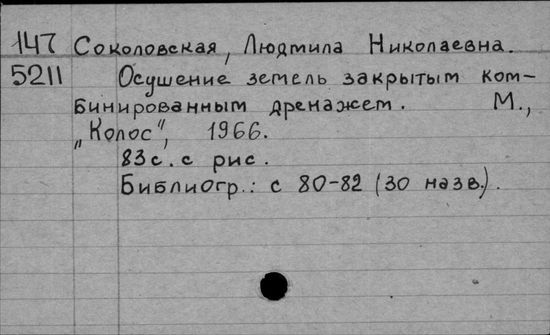 147 Соколовская, Людмила Николаевна.
5211 Осушение земель закрытым ком-
бинированным дренажем. М.,
„Колос", 1966.
83 с. с рис.
Библиогр.: с 80-82 (30 назв.).